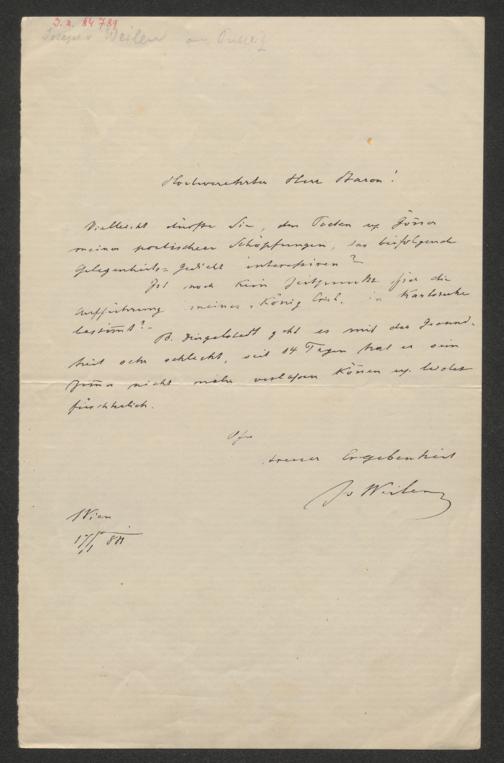 J. N. 84789
Joseph v Weilen an Putlitz
Hochverehrter Herr Baron!
Vielleicht dürfte Sie, den Paten u. Gönner
meiner poetischen Schöpfungen, das beifolgende
Gelegenheits-Gedicht interessiren?
Ist noch kein Zeitpunkt für die
Aufführung meines „König Erich“ in Karlsruhe
bestimmt? -
B. Dingelstedt geht es mit der Gesund-
heit sehr schlecht, seit 14 Tagen hat er sein
Zimmer nicht mehr verlassen können u. leidet
fürchterlich.
Ihr
treuer Ergebenheit
Jos Weilen
Wien
17/1 881